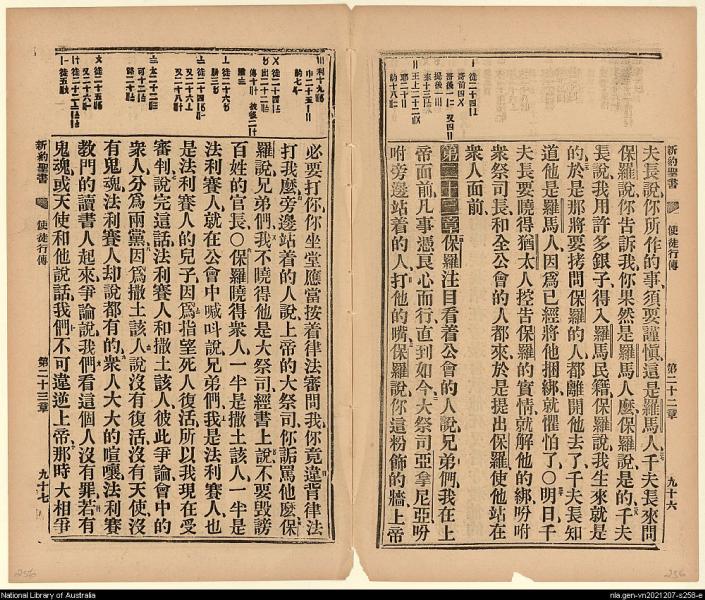 新約聖書 使徒行傳 第二十二章 九十六
夫長說你所作的事須要謹愼這是羅馬人千夫長來問
保羅說你告訴我你果然是羅馬人麼保羅說是的千夫
長說我用許多銀子得入羅馬民籍保羅說我生來就是
的於是那將要拷問保羅的人都離開他去了千夫長知
道他是羅馬人因爲已經將他捆綁就懼怕了〇明日千
夫長要曉得猶太人控告保羅的實情就解他的綁吩咐
衆祭司長和全公會的人都來於是提出保羅使他站在
衆人面前
第二十三章保羅注目看着公會的人說兄弟們我在上
帝面前凡事憑良心而行直到如今大祭司亞拿尼亞吩
咐旁邊站着的人打他的嘴保羅說你這粉飾的牆上帝
必要打你你坐堂應當按着律法審問我你竟違背律法
打我麼旁邊站着的人說上帝的大祭司你詬罵他麼保
羅說兄弟們我不曉得他是大祭司經書上說不要毀謗
百姓的官長〇保羅曉得衆人一半是撒土該人一半是
法利賽人就在公會中喊呌說兄弟們我是法利賽人也
是法利賽人的兒子因爲指望死人復活所以我現在受
審判說完這話法利賽人和撒土該人彼此爭論會中的
衆人分爲兩黨因爲撒土該人說沒有復活沒有天使沒
有鬼魂法利賽人却說都有的衆人大大的喧嚷法利賽
教門的讀書人起來爭論說我們看這個人沒有罪若有
鬼魂或天使和他說話我們不可違逆上帝那時大相爭
新約聖書 使徒行傳 第二十三章 九十七
256
256
National Library of Australia
nla.gen-vn2021207-s258-e